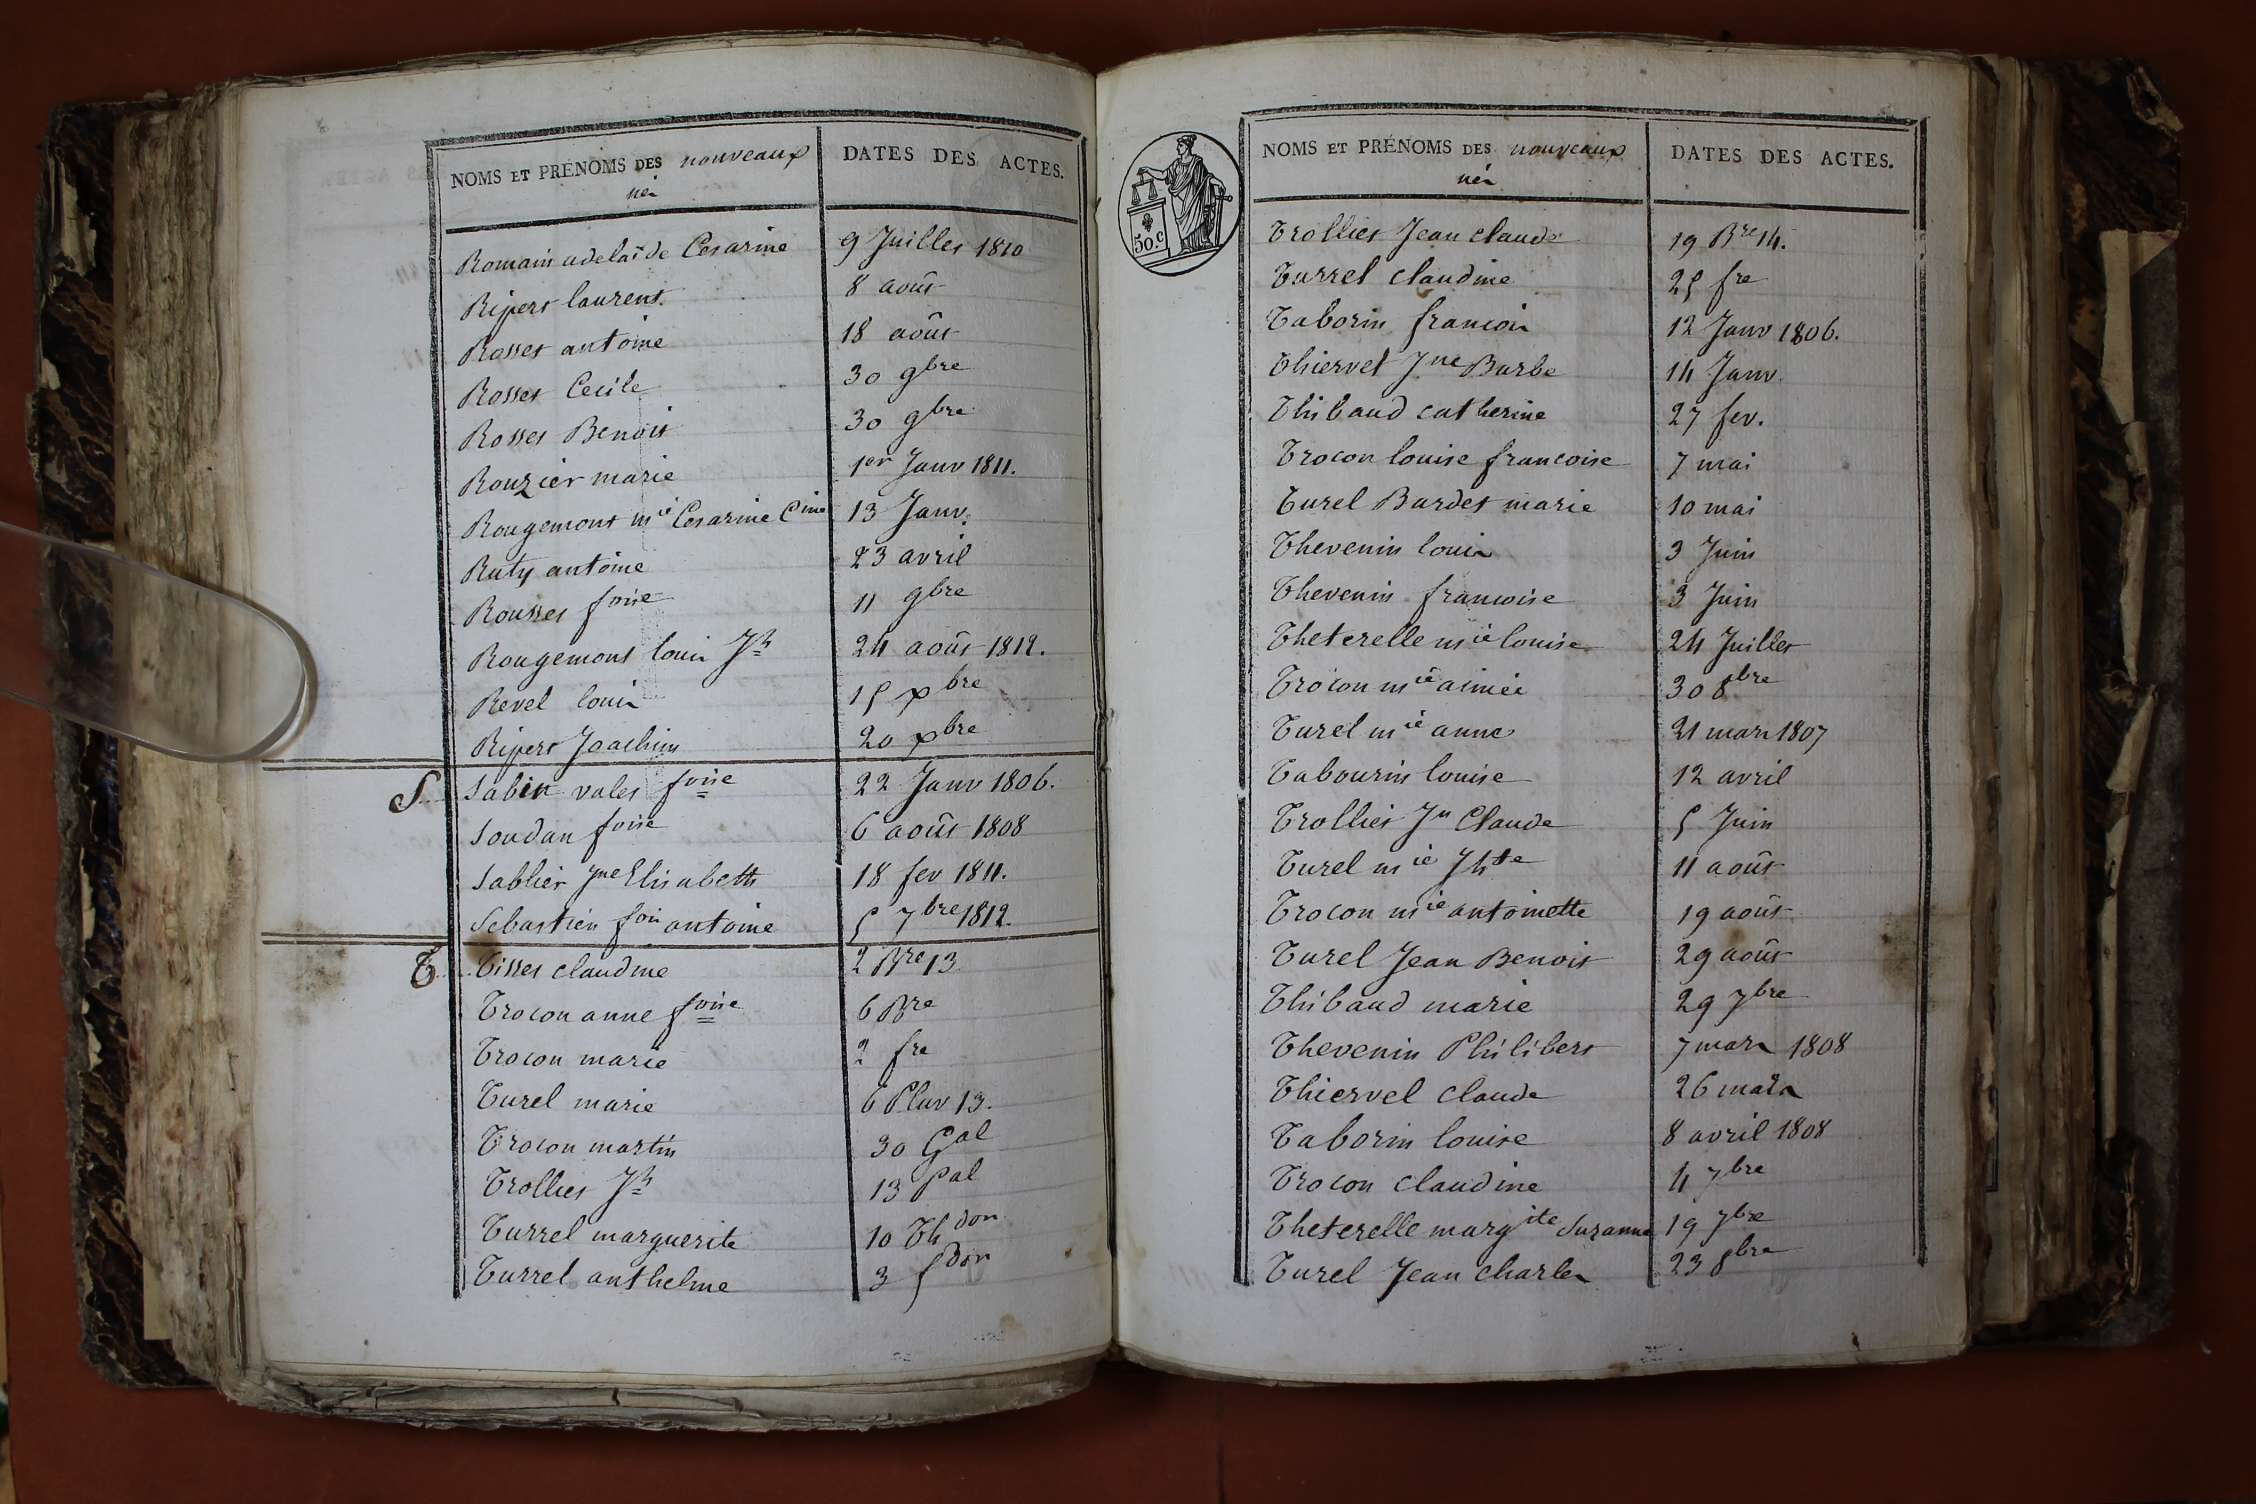 NOMS ET PRÉNOMS DES nouveaux nés DATES DES ACTES.
Romain adelaïde Cesarine 9 Juillet 1810
Ripert laurent 8 août
Rosset antoine 18 août
Rosset Cecile 30 9bre
Rosset Benoit 30 9bre
Rouzier marie 1er Janv 1811.
Rougemont mie Cesarine Cine 13 Janv.
Ruty antoine 23 avril
Rousset foise 11 9bre
Rougemont louis Jh 24 août 1812.
Revel louis 15 xbre
Ripert Joachim 20 xbre
S. Sabin valet foise 22 Janv 1806.
Soudan foise 6 août 1808
Sablier Jne Elisabeth 18 fev 1811.
Sebastien fois antoine 5 7bre 1812.
T. Tisset claudine 2 Bre 13
Trocon anne foise 6 Bre
Trocon marie 2 fre
Turel marie 6 Pluv 13.
Trocon martin 30 Gal
Trolliet Jh 13 Pal
Turrel marguerite 10 Thdon
Turrel anthelme 3 fdon
50.c
NOMS ET PRÉNOMS DES nouveaux nés DATES DES ACTES.
Trolliet Jean claude 19 Bre 14.
Turrel claudine 25 fre
Taborin francois 12 Janv 1806.
Thiervet Jne Barbe 14 Janv.
Thibaud catherine 27 fev.
Trocon louise francoise 7 mai
Turel Bardet marie 10 mai
Thevenin louis 3 Juin
Thevenin francoise 3 Juin
Theterelle mie louise 24 Juillet
Trocon mie aimée 30 8bre
Turel mie anne 21 mars 1807
Tabourin louise 12 avril
Trolliet Jn Claude 5 Juin
Turel mie Jhte 11 août
Trocon mie antoinette 19 août
Turel Jean Benoit 29 août
Thibaud marie 29 7bre
Thevenin Philibert 7 mars 1808
Thiervel claude 26 mars
Taborin louise 8 avril 1808
Trocon claudine 4 7bre
Theterelle margite Suzanne 19 7bre
Turel Jean charles 23 8bre